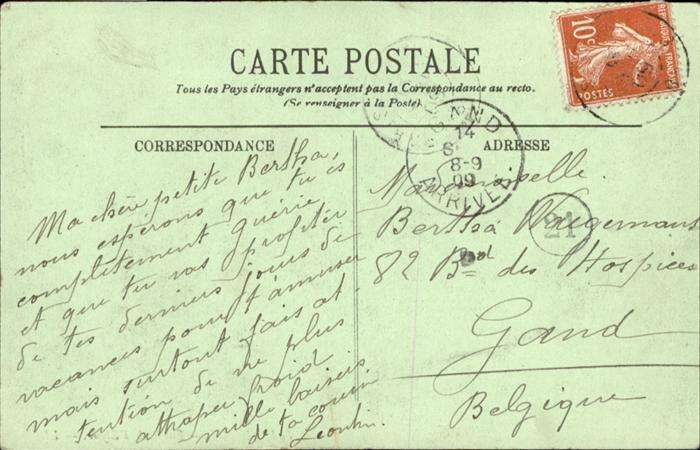 CARTE POSTALE
Tous les Pays étrangers n'acceptent pas la Correspondance au recto.
(Se renseigner à la Poste)
10c
CORRESPONDANCE
Ma chère petite Bertha,
nous espérons que tu es
complètement guérie
et que tu vas profiter
de tes derniers jours de
vacances pour t'amuser
mais surtout fais at-
tention de ne plus
attraper froid
mille baisers
de ta cousine
Leontin.
ADRESSE
Mademoiselle
Bertha Waegemans
82 Bd des Hospices
Gand
Belgique
14
S
8-9
09
ARRIVEE